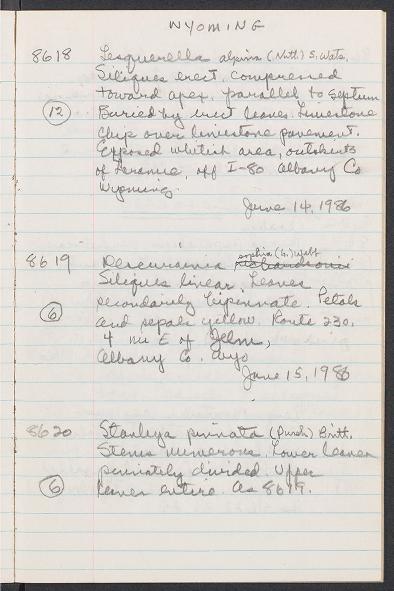 WYOMING
8618 Lesquerella alpina (Nutt.) S. Wats.
Siliques erect, compressed
toward apex, parallel to septum
(12) Buried by erect leaves. Limestone
chip over limestone pavement.
Exposed whitish area, outskirts
of Laramie, off I-80 Albany Co
Wyoming.
June 14, 1986
sophia (L.) Webb
8619 Descurainia
Siliques linear. Leaves
secondarily bipinnate. Petals
(6) and sepals yellow. Route 230,
4 mi E of Jelm,
Albany Co. Wyo
June 15, 1986
8620 Stanleya pinnata (Pursh) Britt.
Stems numerous. Lower leaves
pinnately divided. Upper
(6) leaves entire. As 8619.